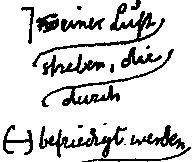 ] seiner Luft
streben, die
durch
(—) befriedigt werden